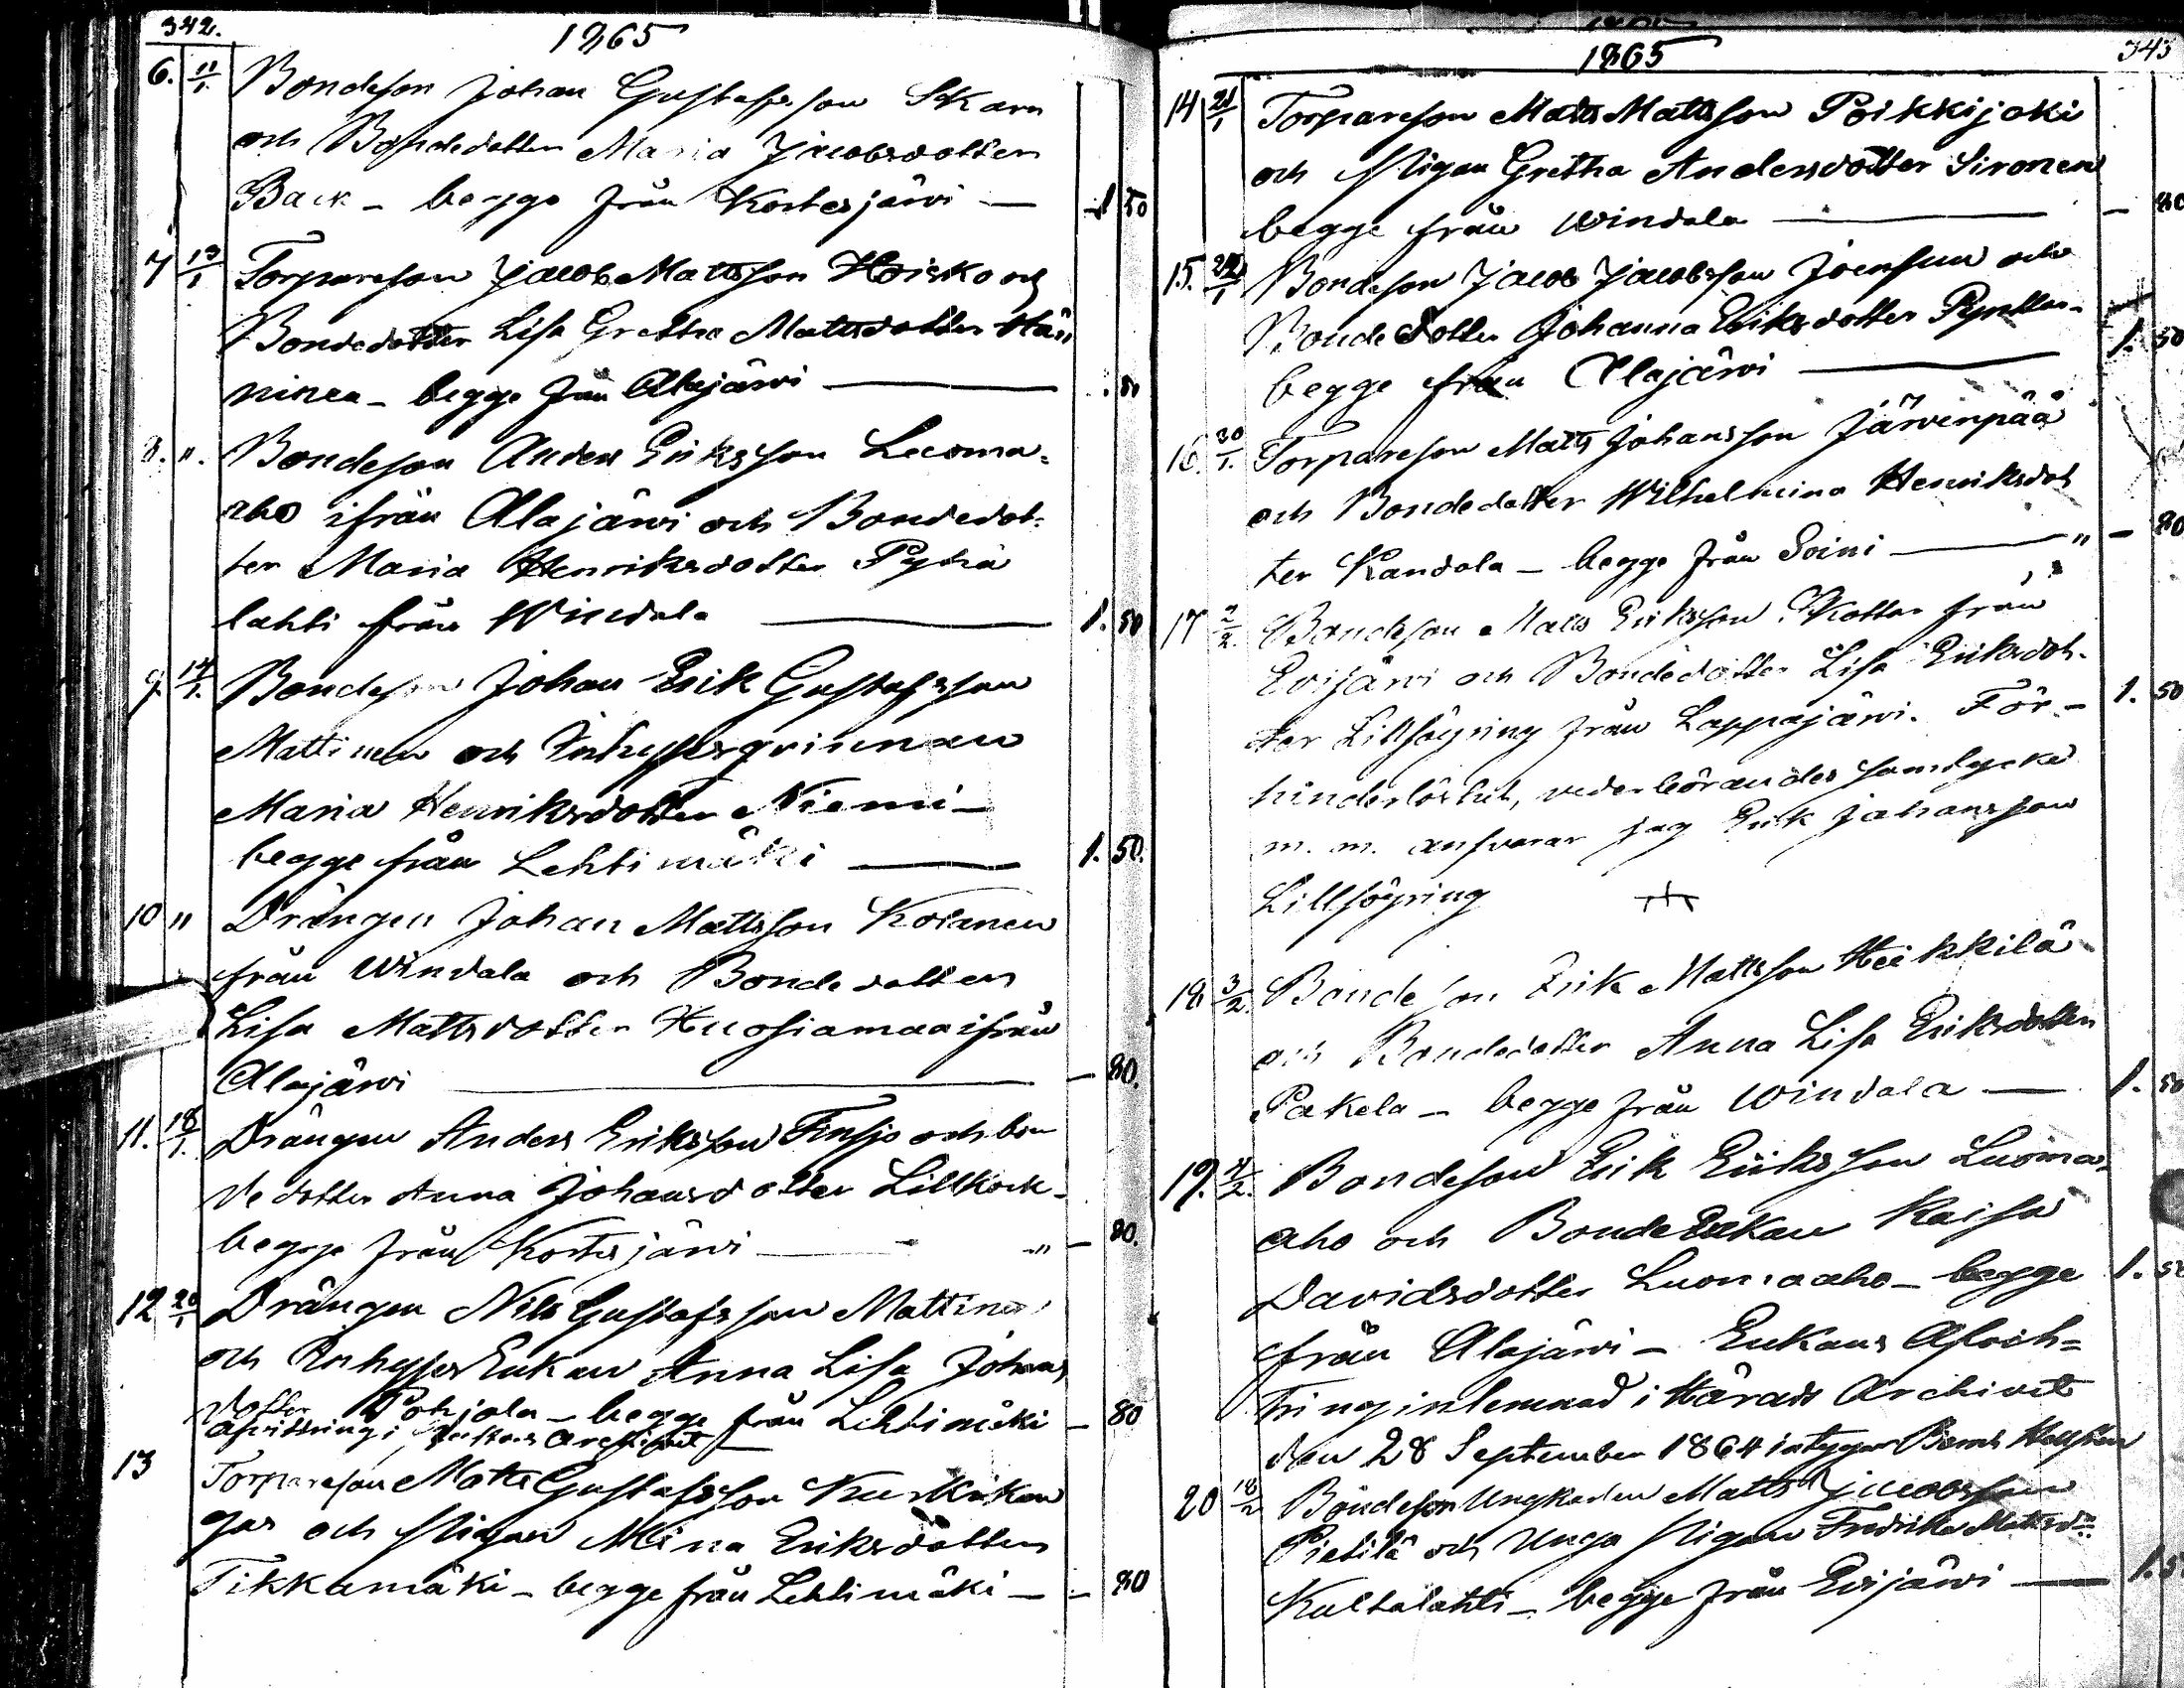 342.
1865
6. 11/1. Bondeson Johan Gustafsson Skarn
och Bondedotter Maria Jacobsdotter
Back - begge från Kortesjärvi — 1 50
7 13/1 Torpareson Jacob Mattsson Hoisko och
Bondedotter Lisa Gretha Mattsdotter Hän
ninen - begge från Alajärvi — . 80
8. ". Bondeson Anders Eriksson Luoma-
aho ifrån Alajärvi och Bondedot-
ter Maria Henriksdotter Pyhä
lahti från Windala — 1. 50
9. 14/1. Bondeson Johan Erik Gustafsson
Mattinen och Inhysesqvinnan
Maria Henriksdotter Niemi -
begge från Lehtimäki — 1. 50.
10 " Drängen Johan Mattsson Koranen
från Windala och Bondedotter
Lisa Mattsdotter Huosiamaa ifrån
Alajärvi — - 80.
11. 18/1. Drängen Anders Eriksson Finsjo och bon
dedotter Anna Johansdotter Lillkock -
begge från Kortesjärvi — " - 80.
12 20/1 Drängen Nils Gustafsson Mattinen
och Inhyses Enkan Anna Lisa Johans
dotter Pohjola - begge från Lehtimäki - 80
Afvittring i Archivet
13 Torpareson Matts Gustafsson Kurkikan
gas och Pigan Mina Eriksdotter
Tikkamäki - begge från Lehtimäki - - 80
1865
343
14 21/1 Torpareson Matts Mattsson Poikkijoki
och Pigan Gretha Andersdotter Sironen
begge från Windala — - 80
15. 22/1 Bondeson Jacob Jacobsson Joensuu och
Bonde Dotter Johanna Eriksdotter
begge från Alajärvi — 1. 50
16. 30/1. Torpareson Matts Johansson Järvenpää
och Bondedotter Wilhelmina Henriksdot
ter Kandola - begge från Soini — " - 80
17 2/2. Bondeson Matts Eriksson Kottar från
Evijärvi och Bondedotter Lisa Eriksdot-
ter Lillsöyring från Lappajärvi. För- 1. 50
hinderlöshet, vederbörandes samtycke
m. m. ansvarar jag Erik Johansson
Lillsöyring
18 3/2. Bondeson Erik Mattsson Heikkilä
och Bondedotter Anna Lisa Eriksdotter
Pakela - begge från Windala — 1. 50
19. 4/2. Bondeson Erik Eriksson Luoma-
aho och Bonde Enkan Kaisa
Davidsdotter Luomaaho - begge 1. 50
från Alajärvi - Enkans Afvit-
tring inlemnad i Härads Archivet
den 28 September 1864 intygar
20 18/2 Bondeson Ungkarlen Matts Jacobsson
Pietilä och Unga Pigan Fredrika Mattsd:r
Kultalahti - begge från Evijärvi — 1. 5